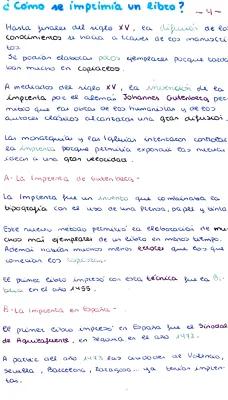 ¿Cómo se imprimía un libro? -4-
Hasta finales del siglo XV, la difusión de los
conocimientos se hacía a través de los manuscri
tos
Se podían elaborar pocos ejemplares porque tarda
ban mucho en copiarlos.
A mediados del siglo XV, la invención de la
imprenta por el alemán Johannes Gutenberg per
mitió que las obras de los humanistas y de los
autores clásicos alcanzaran una gran difusión.
Las monarquías y las Iglesias intentaron controlar
la imprenta porque permitía expandir las nuevas
ideas a una gran velocidad.
A- La Imprenta de Gutenberg-
La Imprenta fue un invento que combinaba la
tipografía con el uso de una prensa, papel y tinta
Este nuevo método permitió la elaboración de mu
chos más ejemplares de un libro en menos tiempo.
Además tenían muchos menos errores que los que
cometían los copistas.
El primer libro impreso con esta técnica fue la Bi
blia en el año 1455.
B- La Imprenta en España-
El primer libro impreso en España fue el Sinodal
de Aguilafuente, en Segovia en el año 1472.
A partir del año 1473 las ciudades de Valencia,
Sevilla, Barcelona, Zaragoza... ya tenían impren-
tas.